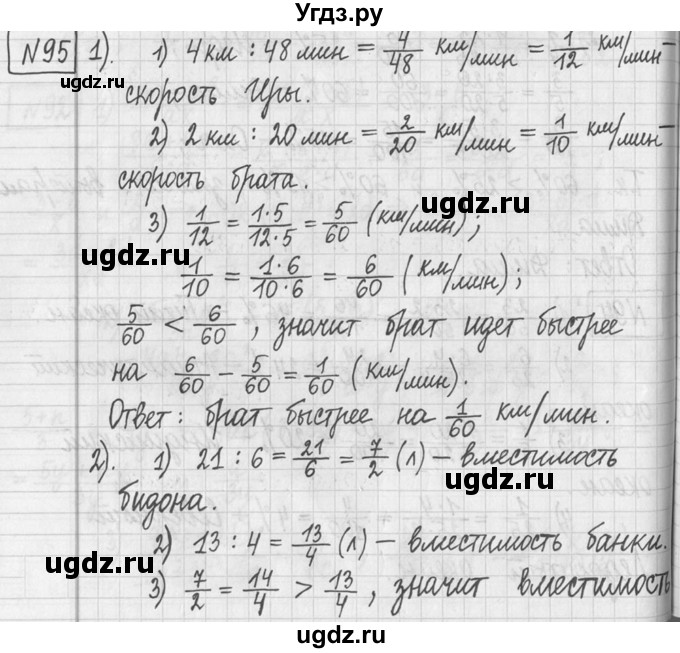 Угдз.ру
№95 1). 1) 4 км : 48 мин = 4/48 км/мин = 1/12 км/мин –
скорость Иры.
2) 2 км : 20 мин = 2/20 км/мин = 1/10 км/мин –
скорость брата.
3) 1/12 = 1·5/12·5 = 5/60 (км/мин);
1/10 = 1·6/10·6 = 6/60 (км/мин);
5/60 < 6/60, значит брат идет быстрее
на 6/60 – 5/60 = 1/60 (км/мин).
Ответ: брат быстрее на 1/60 км/мин.
2). 1) 21 : 6 = 21/6 = 7/2 (л) – вместимость
бидона.
2) 13 : 4 = 13/4 (л) – вместимость банки.
3) 7/2 = 14/4 > 13/4, значит вместимость
ugdz.ru ugdz.ru ugdz.ru
ugdz.ru ugdz.ru ugdz.ru
ugdz.ru ugdz.ru ugdz.ru
ugdz.ru ugdz.ru ugdz.ru
ugdz.ru